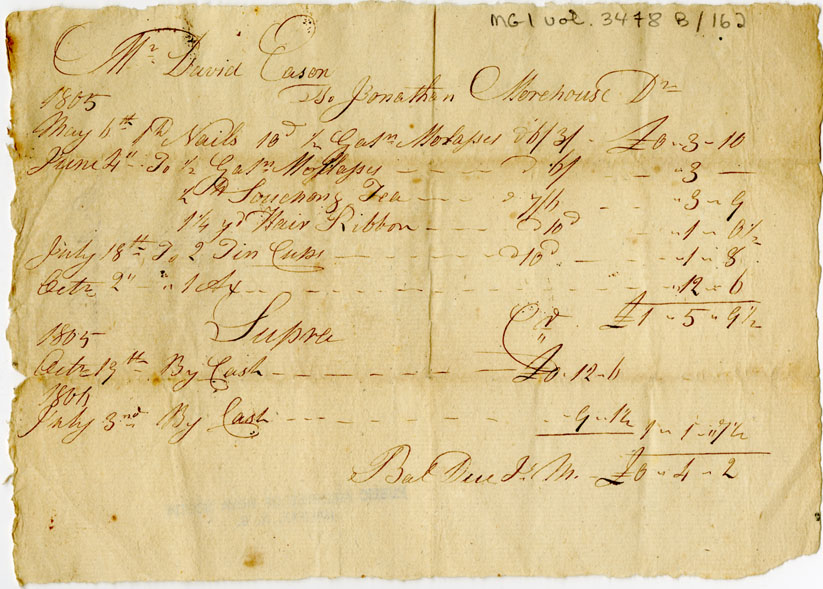 MG1 vol. 3478 B/162
Mr David Eason
1805 To Jonathan Morehouse Dr
May 6th 1 lb Nails 10d ½ Galn Molasses @ 6/ 3/ - £0 - 3 - 10
June 4" To ½ Galn Mollasses - - - - @ 6/ - - " 3 —
½ lb Souchong Tea - - - @ 7/6 - - " 3 " 9
1¼ yd Hair Ribbon - - - @ 10d - - " 1 " 0½
July 18th To 2 Tin Cups - - - - @ 10d - - - " 1 " 8
Octr 2" - " 1 Ax - - - - - - - - - " 12 " 6
£1 " 5 " 9½
Supra Cr
1805
Octr 19th By Cash - - - - - - £0 " 12 " 6
1806
July 3nd By Cash - - - - - - " 9 " 1½ 1 " 1 " 7½
Bal Due J. M. - £0 " 4 " 2